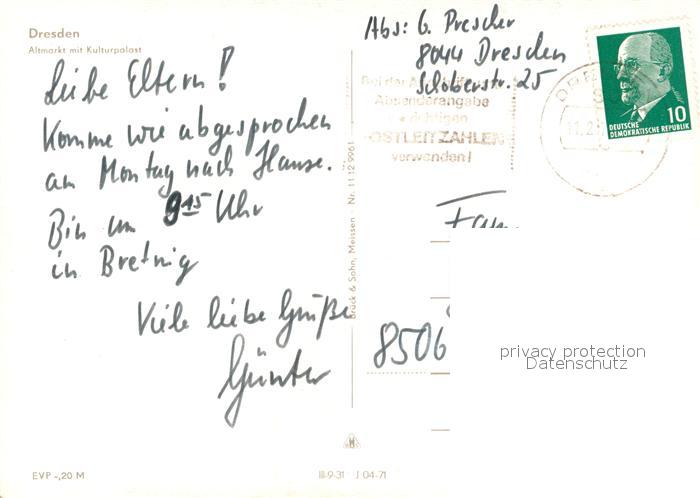 Dresden
Altmarkt mit Kulturpalast
Liebe Eltern!
Komme wie abgesprochen
am Montag nach Hause.
Bin um 9 15 Uhr
in Bretnig
Viele liebe Grüße
Günter
EVP -,20 M
Brück & Sohn, Meissen - Nr. 11 12 9961
III-9-31 J 04-71
Abs: G. Prescher
8044 Dresden
Schoberstr. 25
Bei der
Absenderangabe
richtigen
POSTLEITZAHLEN
verwenden!
DEUTSCHE
DEMOKRATISCHE REPUBLIK
10
Fam
8506
privacy protection
Datenschutz